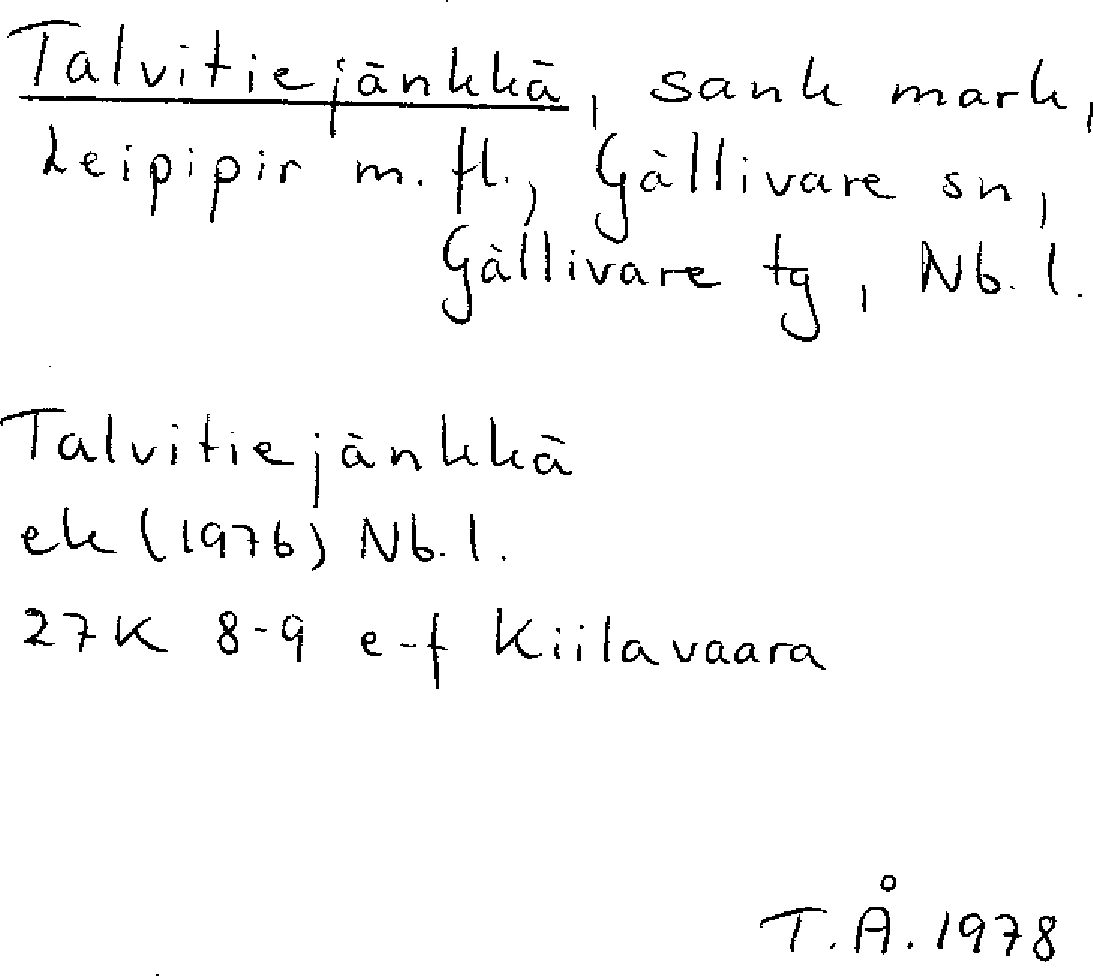 Talvitiejänkkä, sank mark,
Leipipir m. fl., Gällivare sn,
Gällivare tg, Nb. l.
Talvitiejänkkä
ek (1976) Nb. l.
27K 8-9 e-f Kiilavaara
T.Å. 1978